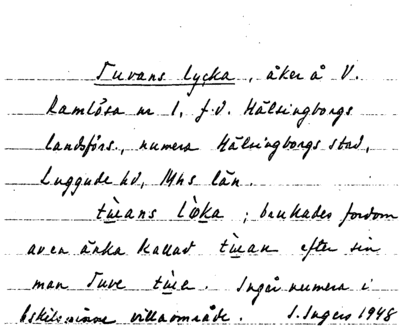 Tuvans lycka, åker å V.
Ramlösa nr 1, f.d. Hälsingborgs
landsförs., numera Hälsingborgs stad,
Luggude hd, Mhs län.
brukades fordom
av en änka kallad efter sin
man Tuve Ingår numera i
villaområde. I. Ingers 1948